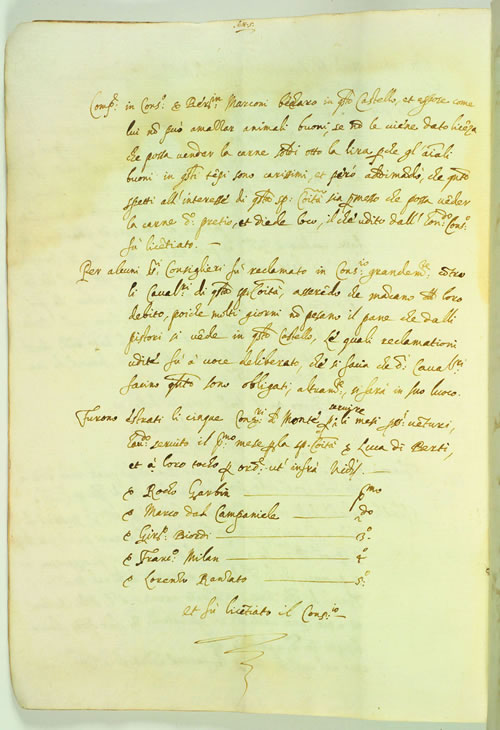 Comp.e in Cons.o D. Pier.in Marconi beccaro in q.sto Castello, et espose come
lui nõ può amazzar animali buoni, se nõ le viene dato licẽza
che possa vender la carne soldi otto la lira p che gl'aĩali
buoni in q.sti tẽpi sono carissimi, et però adimãda, che q.nto
spetti all'interesse di q.sta sp: Coĩtà sia p messo che possa vẽder
la carne d.o pretio, et diede loco, il che udito dall'
fu licẽtiato. —
Per alcuni S.ri Consiglieri fu reclamato in Cons.io grandem.te cõtra
li Caval.ri di q.sta sp: Coĩtà, asserẽdo che mãcano loro
debito, poiche molti giorni nõ pesano il pane che dalli
pistori si vẽde in q.sto Castello, le quali reclamationi
udite fu à voce deliberato, che si facia che d.i Caval.ri
facino q.nto sono obligati, altram.te si farà in suo luoco.
Furono estrati li cinque Con.ri d. Monte servire p li mesi p.o venturi,
servito il p.mo mese p la sp: Coĩtà D. Luca di Berti,
et à loro tocho p ord.e ut infrà Vid.t —
D. Rocho Garbin — p.mo
D. Marco dal Campaniele — 2.do
D. Gir.o Biordi — 3.o
D. Franc.o Milan — 4.o
D. Lorenzo Randato — 5.o
et fu licẽtiato il Cons.io —